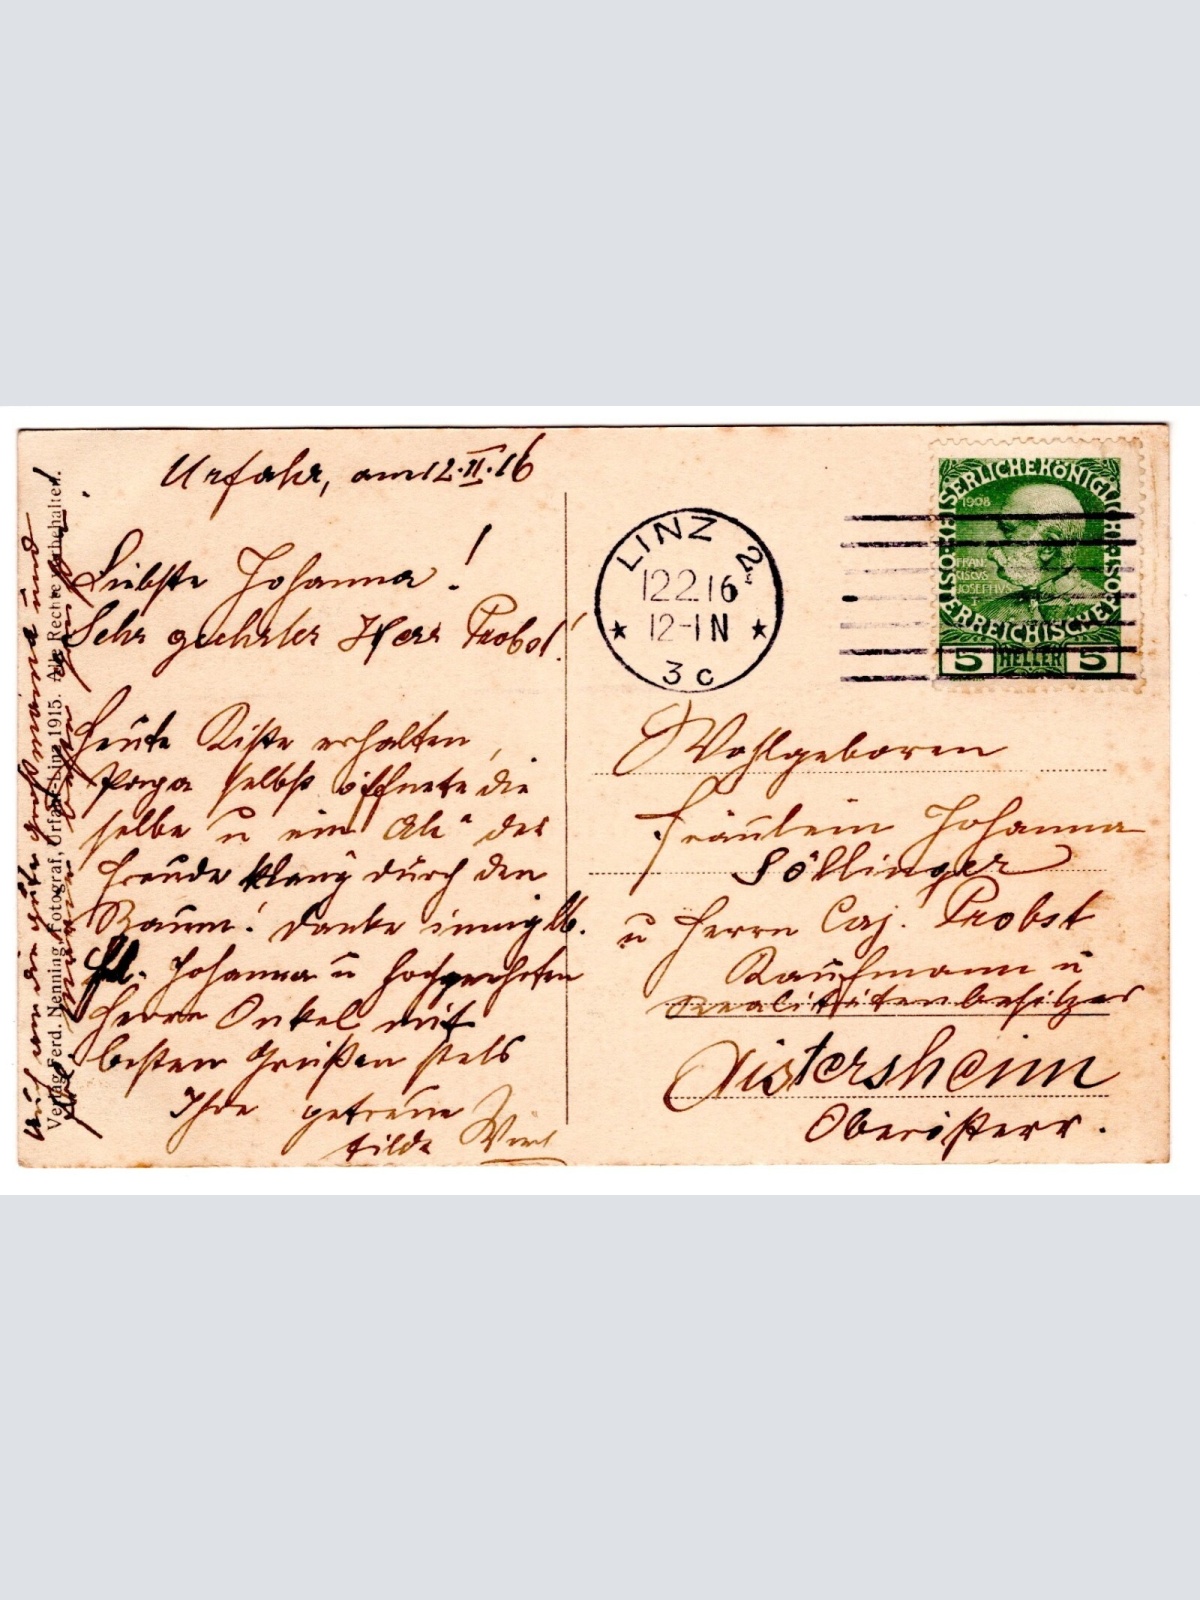 Urfahr, am 12.II.16
Liebste Johanna!
Sehr geehrter Herr Probst!
Heute Kiste erhalten,
Papa selbst öffnete die
selbe u ein "Ah" der
Freude klang durch den
Raum! Danke innig lb.
Frl. Johanna u hochgeehrten
Herrn Onkel mit
besten Grüßen stets
Ihre getreue
Tilde
Auch an die gute Großmama und
Verlag Ferd. Nenning, Fotograf, Urfahr-Linz 1915. Alle Rechte vorbehalten.
LINZ 2
12.2.16
12-1N
3c
KAISERLICHE KÖNIGLICHE ÖSTERREICHISCHE POST
1908
FRAN
CISCVS
JOSEPHVS
I
5 HELLER 5
Wohlgeboren
Fräulein Johanna
Söllinger
u Herrn Caj. Probst
Kaufmann u
Realitätenbesitzer
Aistersheim
Oberösterr.